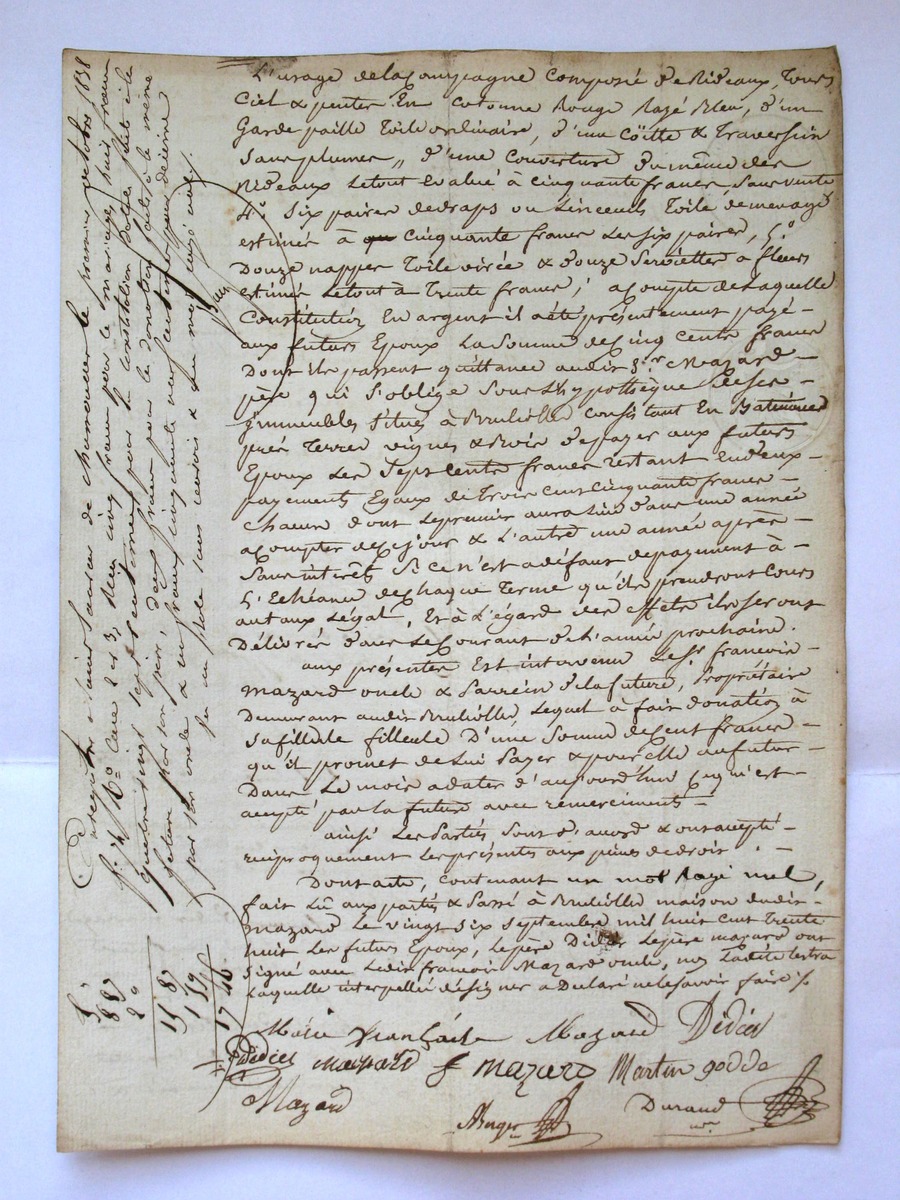 L'usage de la Campagne Composé de Rideaux, Tours
Ciel & pentes En Cotonne Rouge Rayé Bleu, d'un
Garde paille Toile ordinaire, d'une Cöitte & Traversin
Sans plumes, d'une Couverture du même des
Rideaux Le tout Evalué à Cinquante francs Sans vente
4.° Six paires de draps ou Linceuils Toile de menage
estimés à Cinquante francs Les Six paires, 5.°
Douze nappes Toile virée & Douze Serviettes a fleurs
estimé Le tout à Trente francs; a Compte de Laquelle
Constitution En argent il a été présentement payé
aux futurs Epoux La Somme de Cinq Cents francs
Dont ils passent quittance audit S.r Mazard
père qui S'oblige Sous L'hypothèque de Ses
jmmeubles Situés à Brulliolle Consistant En Batiment
prés Terres vignes & Bois De payer aux futurs
Epoux Les Sept Cents francs restant En deux
payements Egaux de trois Cent Cinquante francs
Chacun dont Le premier aura lieu dans une année
a Compter de Ce jour & L'autre une année après
Sans interêts Si Ce n'est a défaut de payement à
L'Echéance de Chaque Terme qu'ils prendront Cours
au taux Légal, Et à L'égard des effets ils Seront
Délivrés dans Le Courant de L'année prochaine.
aux présentes Est intervenu Le S.r françois
Mazard oncle & Parrein de La future, Propriétaire
Demeurant audit Brulliolle, Lequel à fait donation à
Sa fillule D'une Somme de Cent francs
qu'il promet de Lui Payer & pour elle au futur
Dans Le mois a dater d'aujourd'hui Ce qui est
accepté par La future avec remerciment
ainsi Les Parties Sont d'acord & ont accepté
reciproquement Les présentes aux peines de droit
Dont acte, Contenant un mot Rayé nul,
fait Lû aux parties & Passé à Brulliolle maison dudit
Mazard Le vingt Six Septembre mil huit Cent Trente
huit Les futurs Epoux, Le père Didier Le père Mazard ont
Signé avec Ledit françois Mazard oncle, non Ladite
Laquelle interpellée de Signer a Déclaré ne Le Savoir faire
Marie Françoise Mazard Didier
Didier Mazard f Mazard Martin godde
Mazard
Berger Durand
Enregistré à Saint Laurent de Chamousset le premier octobre 1838
f.° 4 V.° Case 2 et 3, reçu cinq francs pour le mariage, huit francs
quatre vingt sept centimes pour la constitution dotale faite à la
par son père, deux francs pour la donation faite à la même
par son oncle & un franc cinquante neuf centimes pour décime
5
8 87
2 "
15 87
1 59
17 46